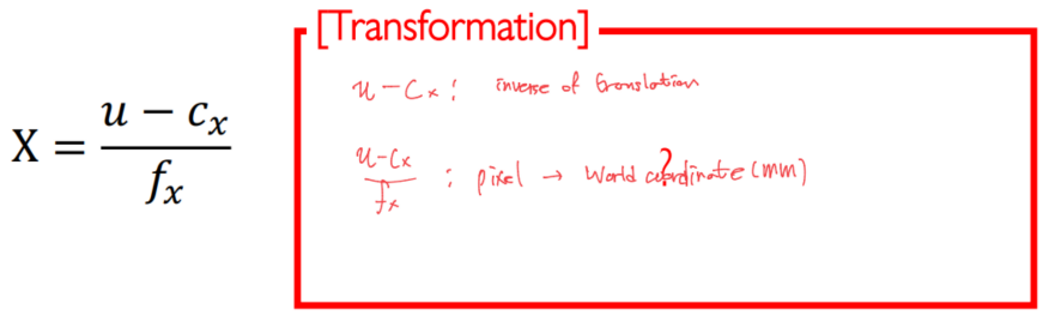 [Transformation]
u - Cx : inverse of translation
X = (u - c_x) / f_x
(u - Cx) / fx : pixel → World coordinate (mm)
?